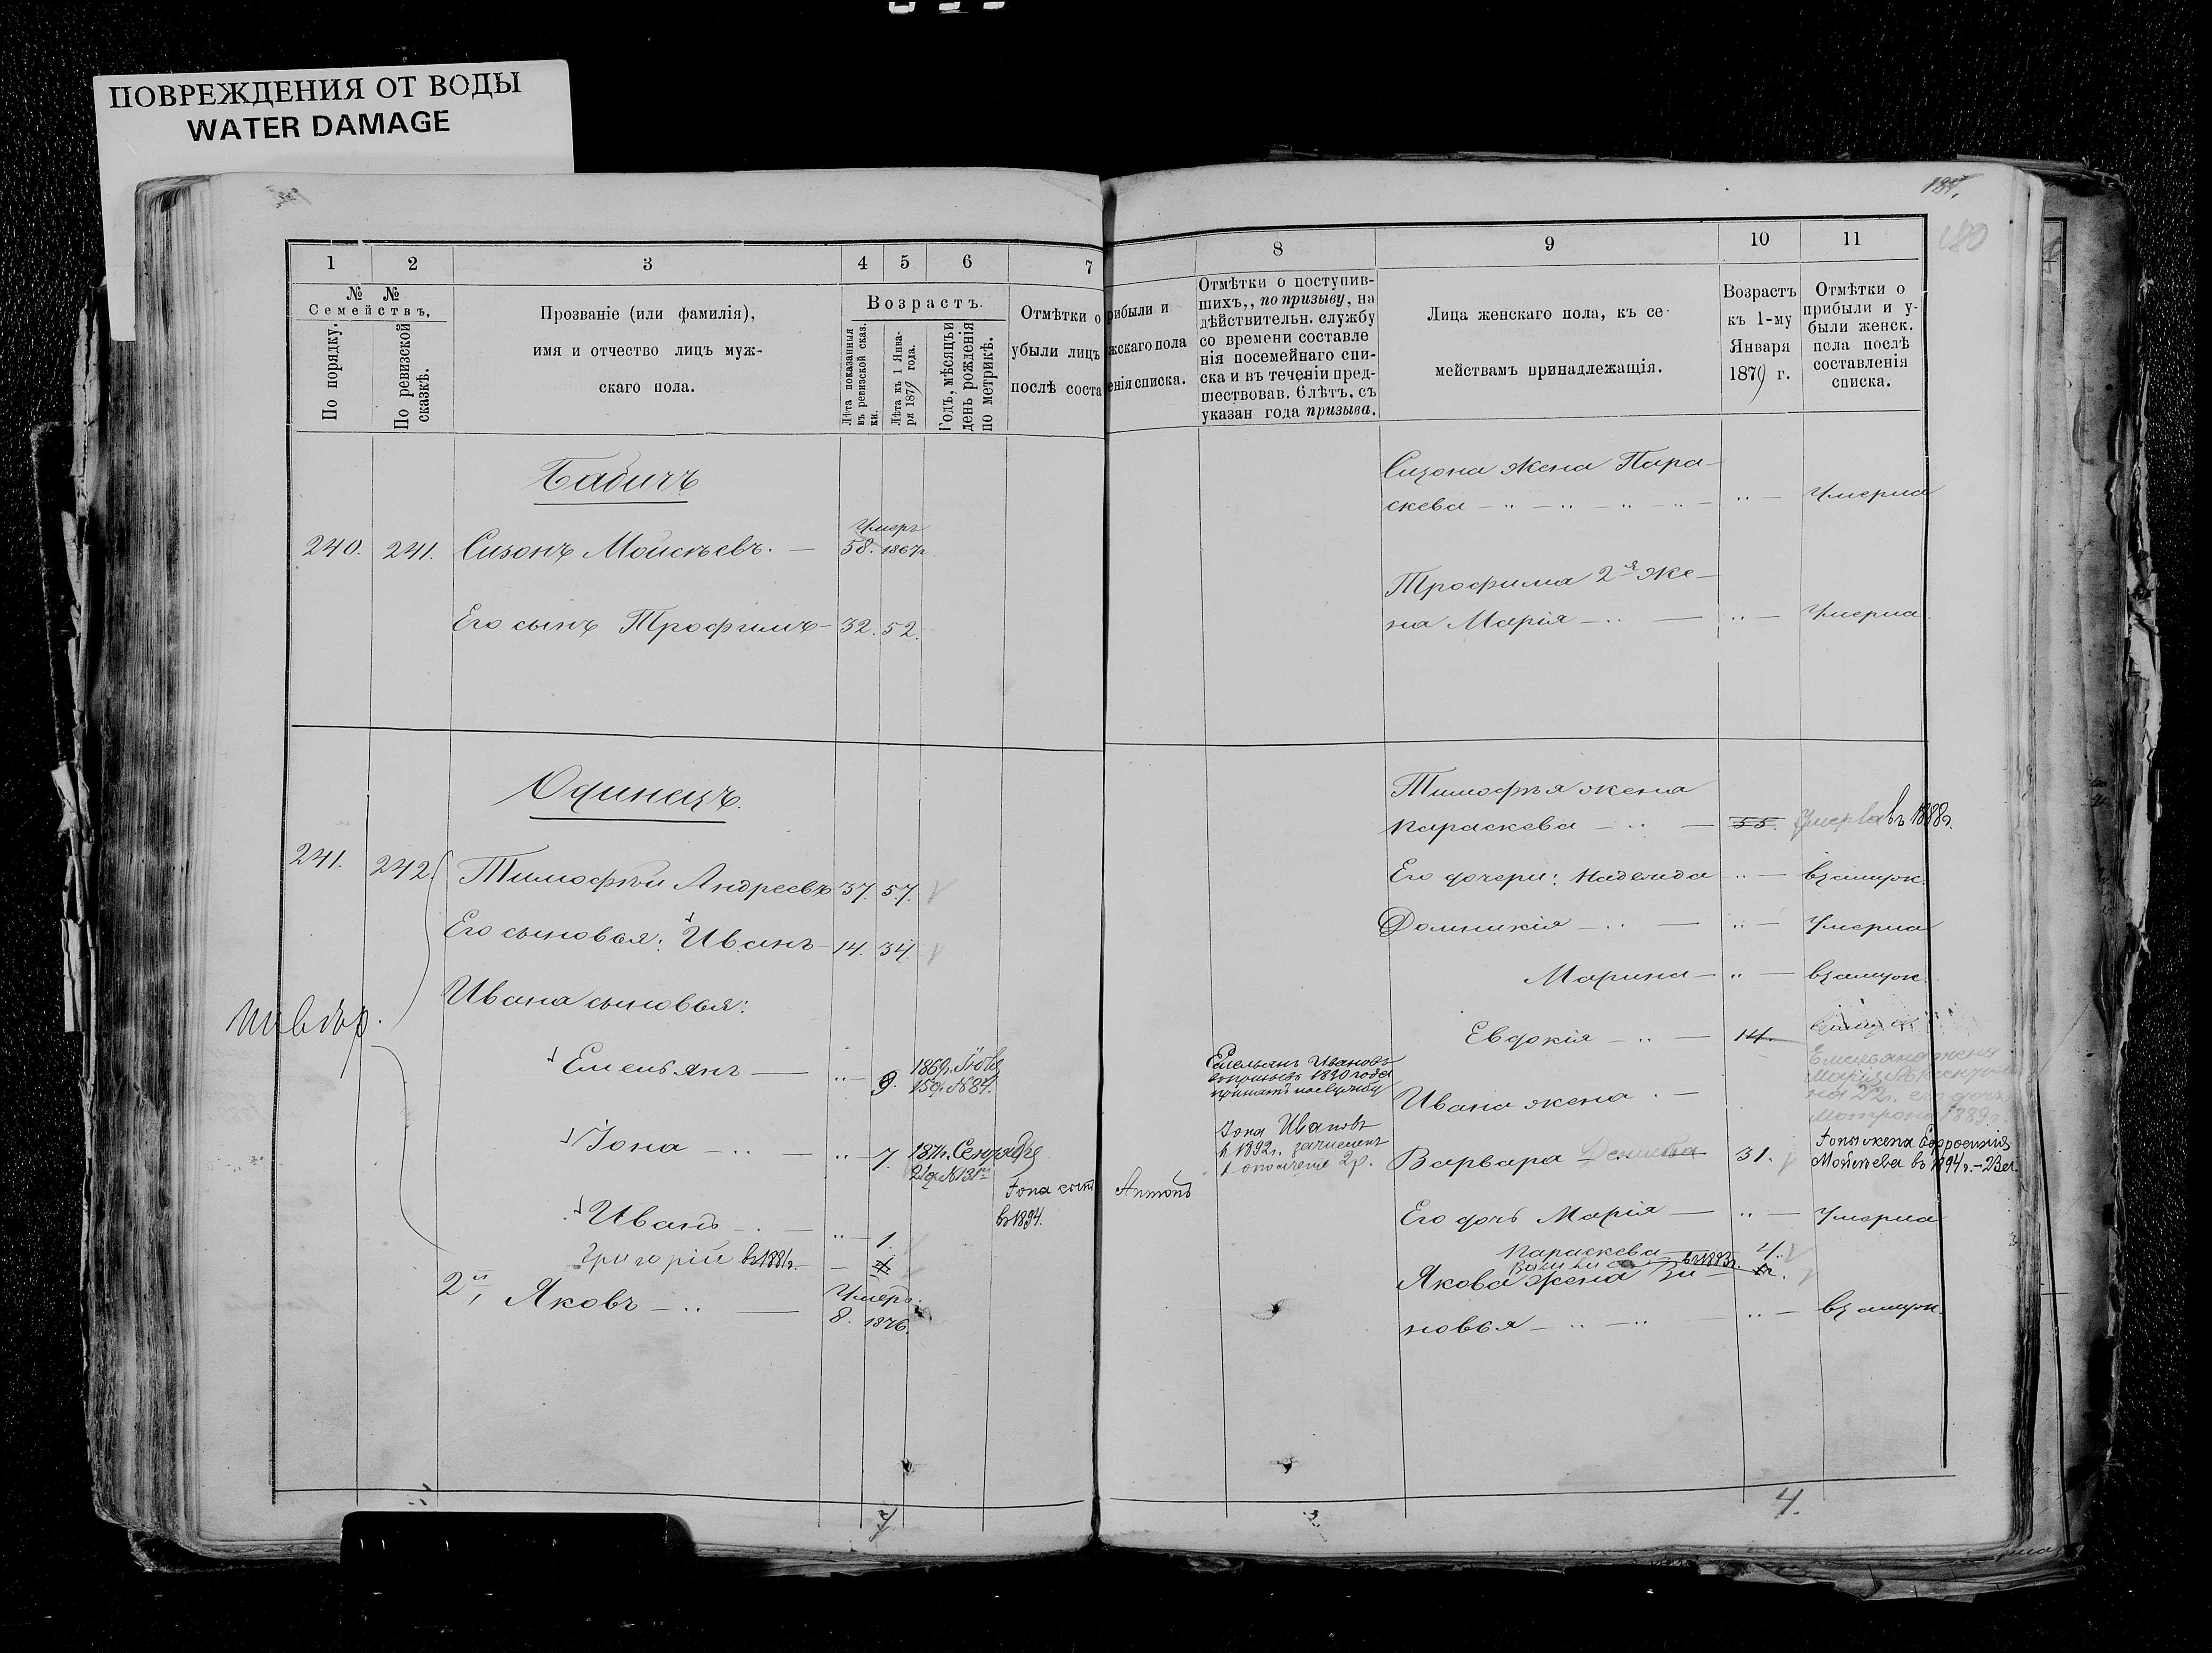 ПОВРЕЖДЕНИЯ ОТ ВОДЫ
WATER DAMAGE
187.
180
1 2 3 4 5 6 7 8 9 10 11
№ №
Семействъ,
По порядку.
По ревизской сказкѣ.
Прозваніе (или фамилія),
имя и отчество лицъ муж-
скаго пола.
Возрастъ.
Лѣта показанныя въ ревизской сказ. ки.
Лѣта къ 1 Янва-
ря 1879 года.
Годъ, мѣсяцъ и день рожденія по метрикѣ.
Отмѣтки о прибыли и
убыли лицъ мужскаго пола
послѣ составленія списка.
Отмѣтки о поступив-
шихъ,, по призыву, на
дѣйствительн. службу
со времени составле
нія посемейнаго спи-
ска и въ теченіи пред-
шествовав. 6 лѣтъ, съ
указан года призыва.
Лица женскаго пола, къ се-
мействамъ принадлежащія.
Возрастъ
къ 1-му
Января
1879 г.
Отмѣтки о
прибыли и у-
были женск.
пола послѣ
составленія
списка.
Бабичъ
240. 241. Сизонъ Моисѣевъ. — 58. Умеръ 1867г.
Его сынъ Трофимъ — 32. 52.
Сизона жена Пара-
скева — Умерла
Трофима 2я же-
на Марія — Умерла
Одинецъ.
241. 242. Тимофѣй Андреевъ 37. 57.
Его сыновья: Иванъ — 14. 34.
Ивана сыновья:
Емельянъ — 9. 1869г.
15 д. № 84.
Іона — 7. 1871г. Сентября
21 д. № 131
Іона сынъ Антонъ
въ 1894.
Иванъ — 1.
Григорій въ 1881г.
2й, Яковъ — 8. Умеръ.
1876.
Емельянъ Ивановъ
1890 года
принятъ на службу
Іона Ивановъ
в 1892г. зачисленъ
в ополченіе 2р.
Тимофѣя жена
Параскева — 55. Умерла въ 1888г.
Его дочери: Надежда — взамуж.
Домникія — Умерла
Марина — взамуж.
Евдокія — 14.
Емельяна жена
Марія
на 22г. его дочь
Матрона 1889г.
Ивана жена —
Варвара 31.
Іоны жена Ефросинія
Мойсѣева въ 1894г.
Его дочь Марія — Умерла
Параскева 4.
въ 1883г.
Якова жена Зи-
новья — взамуж.
4.